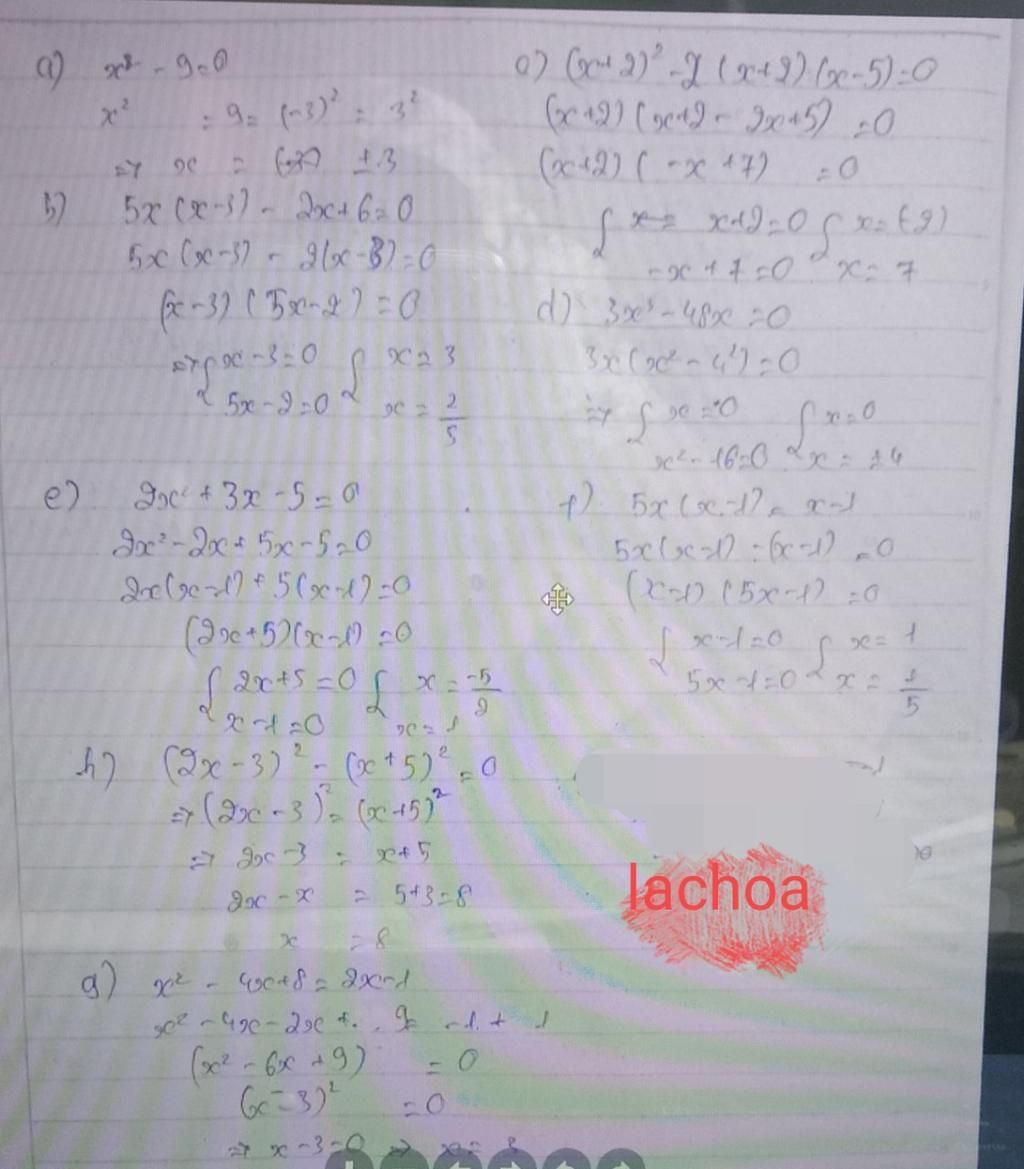 a) x² - 9=0
x² = 9 = (-3)² = 3²
=> x = ±3
b) 5x(x-3) - 2x+6=0
5x(x-3) - 2(x-3)=0
(x-3)(5x-2)=0
=> { x-3=0 { x=3
5x-2=0 x = 2/5
c) (x+2)² - 2(x+2)(x-5)=0
(x+2)(x+2 - 2x+5) =0
(x+2)(-x+7) =0
{ x+2=0 { x=(-2)
-x+7=0 x=7
d) 3x³ - 48x =0
3x(x² - 4²)=0
=> { x=0 { x=0
x²-16=0 x = ±4
e) 2x² + 3x - 5 = 0
2x² - 2x + 5x - 5=0
2x(x-1) + 5(x-1)=0
(2x+5)(x-1)=0
{ 2x+5=0 { x = -5/2
x-1=0 x=1
f) 5x(x-1) = x-1
5x(x-1) - (x-1) =0
(x-1)(5x-1) =0
{ x-1=0 { x=1
5x-1=0 x = 1/5
h) (2x-3)² - (x+5)² = 0
=> (2x-3)² = (x+5)²
=> 2x-3 = x+5
2x-x = 5+3=8
x =8
lachoa
g) x² - 4x+8 = 2x-1
x² - 4x - 2x + 9= -1 + 1
(x² - 6x + 9) = 0
(x-3)² =0
=> x-3=0 => x= 3